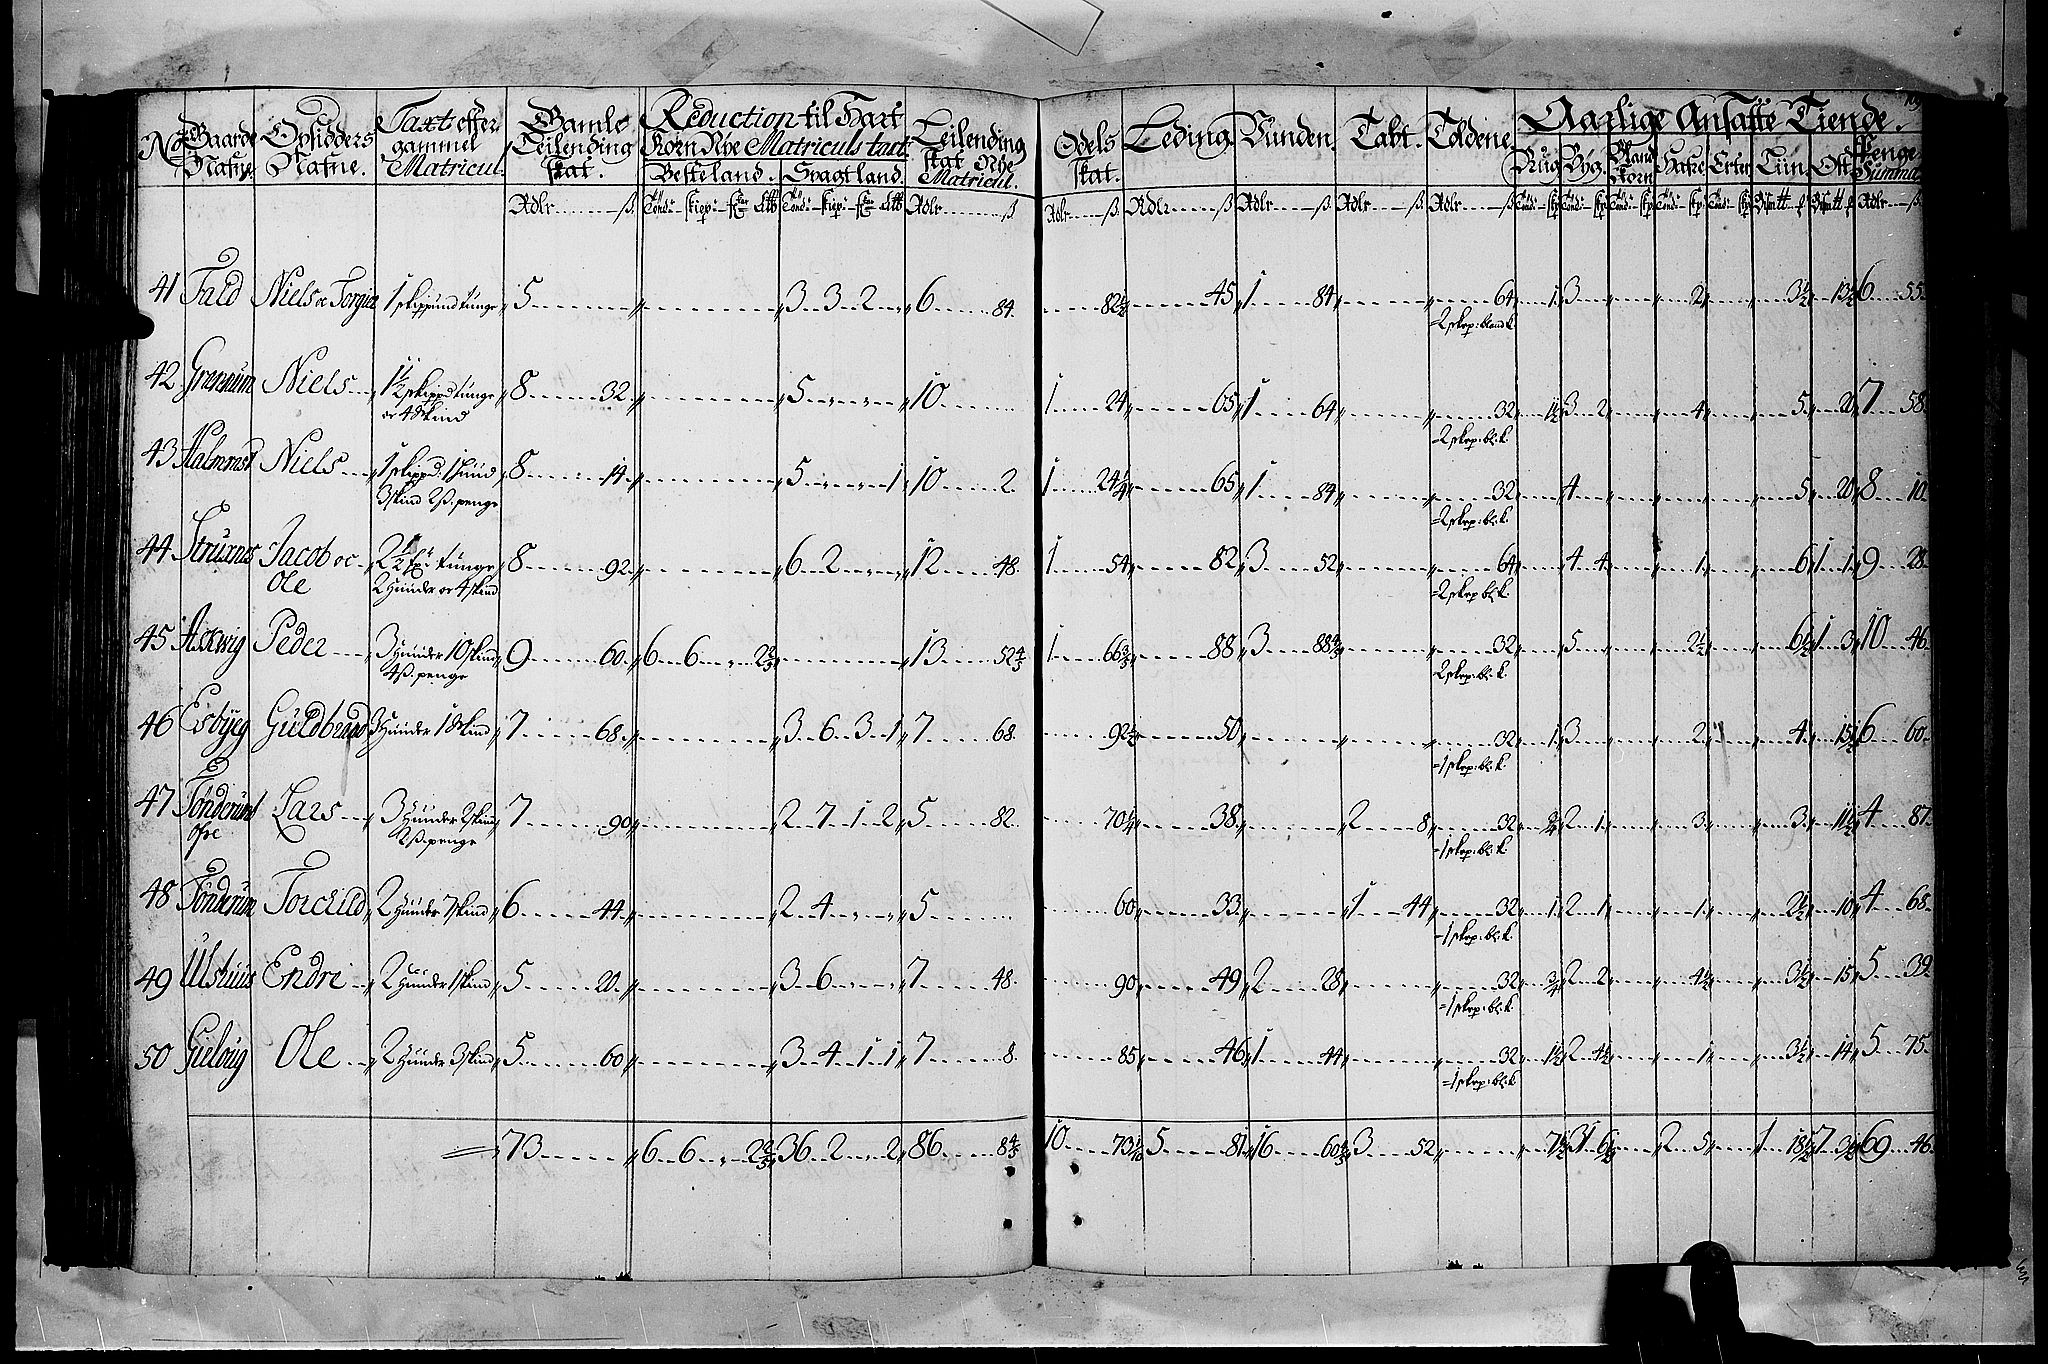 No Gaarde Opsidders Taxt efter Gamle Reduction til Hart Leilending
Nafne. Nafne. gammel Leilending Korn Nÿe Matriculs taxt skat Nÿe
Matricul. skat. Besteland. Svagtland. Matricul.
Rdlr ß Tönd: skiep: Rdlr ß
Odels Leding Vunden. Tabt. Toldene Aarlige Ansatte Tiende.
skat. Rug Byg. Bland korn Hafre Erter Liin Ost Penge Summa
Rdlr ß Rdlr ß Rdlr ß Rdlr ß Rdlr ß
41 Fald Niels oc Torgier 1 skippund tunge 5 3 3 2 6 84 82½ 45 1 84 64 1 3 2 3½ 13½ 6 55
2 skep: bland k.
42 Niels 1½ skippd tunge 8 32 5 10 1 24 65 1 64 32 1½ 3 2 4 5 20 7 58
oc 4 skind
2 skep: bl: k.
43 Niels 1 skippd: 1 huud 8 14 5 1 10 2 1 24¼ 65 1 84 32 4 5 20 8 10
3 skind 2 ß. penge
2 skep: bl: k.
44 Struxnes Jacob oc 2½ tunge 8 92 6 2 12 48 1 54 82 3 52 64 4 4 1 6 1 1 9 28
Ole 2 Huuder oc 4 skind
2 skep bl: k.
45 Askwig Peder 3 Huuder 10 skind 9 60 6 6 2⅔ 13 52⅘ 1 66⅗ 88 3 88⅘ 32 5 2½ 6½ 1 3 10 46
4 ß. penge
2 skep: bl: k.
46 Esbÿeg Guldbrand 3 Huuder 1 skind 7 68 3 6 3 1 7 68 92½ 50 32 1 3 2 4 15½ 6 60
1 skep: bl: k.
47 Lars 3 Huuder 2 skind 7 90 2 7 1 2 5 82 70¼ 38 2 8 32 2 1 3 3 11½ 4 87
øfre 2 ß. penge
1 skep: bl: k.
48 Tönderum Torchild 2 Huuder 7 skind 6 44 2 4 5 60 33 1 44 32 1 2 1 1 2½ 10 4 68
1 skep: bl: k.
49 Ulshuus Endre 2 Huuder 1 skind 5 20 3 6 7 48 90 49 2 28 32 2 2 4½ 3½ 15 5 39
1 skep: bl: k.
50 Gielvig Ole 2 Huuder 3 skind 5 60 3 4 1 1 7 8 85 46 1 44 32 1½ 2 4½ 1 3½ 14 5 75
1 skep: bl: k.
73 6 6 2⅔ 36 2 2 86 8⅘ 10 5 81 16 60⅘ 3 52 7½ 31 2 5 1 18½ 7 69 46